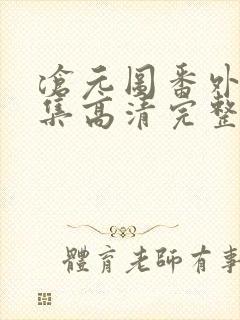 滄元圖番外
集高清完整
體育老師有事